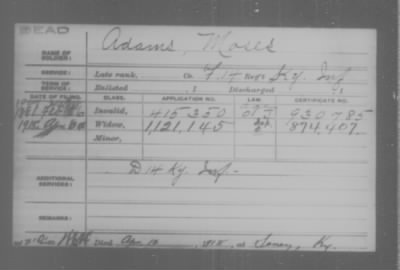 DEAD
NAME OF SOLDIER: Adams, Moses
SERVICE: Late rank, Co. F. 14 Reg't Ky. Inf
TERM OF SERVICE: Enlisted , 1 Discharged , 1
DATE OF FILING. CLASS. APPLICATION NO. LAW. CERTIFICATE NO.
Invalid, 415350 930785
1918 Widow, 1,121,145 874,407
Minor,
ADDITIONAL SERVICES: D 14 Ky. Inf.
REMARKS:
Died Apr. 1918, at Ky.